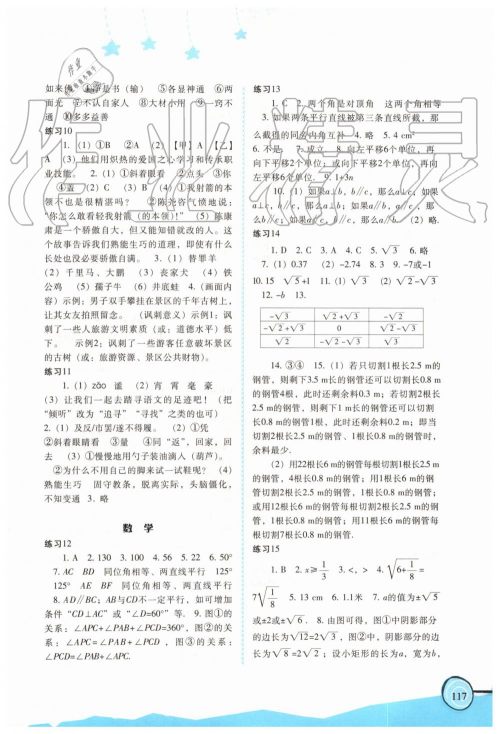 如来佛 ④净是书（输） ⑤各显神通 ⑥两
面光 ⑦不认自家人 ⑧大材小用 ⑨一窍不
通 ⑩多多益善
练习10
1.（1）①B ②A （2）【甲】A 【乙】
A （3）他们用炽热的爱国之心学习和传承职
业技能。 2.（1）①斜着眼看 ②点头 ③你
④盖 （2）C （3）B （4）①我射箭的本
领不也是很精湛吗？ ②陈尧咨气愤地说：
“你怎么敢看轻我射箭（的本领）！” （5）陈康
肃是个骄傲自大，但又能知错就改的人。这
个故事告诉我们熟能生巧的道理，即使有什么
长处也没必要骄傲自满。 3.（1）替罪羊
（2）千里马、大鹏 （3）丧家犬 （4）铁
公鸡 （5）孺子牛 （6）井底蛙 4.（画面内
容）示例：男子双手攀拄在景区的千年古树上，
让其女友拍照留念。（讽刺意义）示例1：讽
刺了一些人旅游文明素质（或：道德水平）低
下。示例2：讽刺了一些游客任意破坏景区
的古树（或：旅游资源、景区公共财物）。
练习11
1.（1）zǎo 谧 （2）宵 霄 毫 豪
（3）让我们一起去踏寻语文的足迹吧！（把
“倾听”改为“追寻”“寻找”之类的也可）
2.（1）及/反/市罢/遂不得履。 （2）①凭
②斜着眼睛看 ③量 ④同“返”，回家，回
去 （3）①慢慢地用勺子装油滴入（葫芦）。
②为什么不用自己的脚来试一试鞋呢？ （4）
熟能生巧 固守教条，脱离实际，头脑僵化，
不知变通 3.略
数学
练习12
1. A 2. 130 3. 100 4. 56 5. 22 6. 50°
7. AC BD 同位角相等、两直线平行 125°
125° AE BF 同位角相等、两直线平行
8. AD∥BC；AB与CD不一定平行，如可增加
条件“CD⊥AC”或“∠D=60°”等. 9. 图①的
关系：∠APC+∠PAB+∠PCD=360°，图②的关
系：∠APC=∠PAB+∠PCD，图③的关系：
∠PCD=∠PAB+∠APC.
练习13
1. C 2. 两个角是对顶角 这两个角相等
3. 如果两条平行直线被第三条直线所截，那
么截得的同旁内角互补 4. 略 5. 4 cm²
6. 不是 7. 成立 8. 向左平移6个单位，再
向下平移2个单位；或向下平移2个单位，再向
左平移6个单位. 9. 1+3n
10.（1）如果a⊥b，b∥c，那么a⊥c，如果
a⊥c，b∥c，那么a⊥b，如果a⊥b，a⊥c，那
么b∥c；如果a∥b，b∥c，那么a∥c （2）略.
练习14
1. D 2. C 3. A 4. C 5. √3 6. 略
7.（1）0.37 （2）-2.74 8. 3 9. -7或-1
10. 15 √5+1 11.（1）√3 （2）√2-√3
12. -b 13.
-√3 √2+√3 -√2
-√2+√3 0 √2-√3
√2 -√2-√3 √3
14. ③④ 15.（1）若只切割1根长2.5 m的
钢管，则剩下3.5 m长的钢管还可以切割长0.8 m
的钢管4根，此时还剩余料0.3 m；若切割2根长
2.5 m的钢管，则剩下1 m长的钢管还可以切割
长0.8 m的钢管1根，此时还剩余料0.2 m；即当
切割2根长2.5 m的钢管、1根长0.8 m的钢管时，
余料最少.
（2）用22根长6 m的钢管每根切割1根长2.5 m
的钢管，4根长0.8 m的钢管；用1根长6 m的钢
管切割2根长2.5 m的钢管、1根长0.8 m的钢管；
或用12根长6 m的钢管每根切割2根长2.5 m的钢
管、1根长0.8 m的钢管；用11根长6 m的钢管每
根切割7根长0.8 m的钢管.
练习15
1. B 2. x≥1/3 3. <，> 4. √(6+1/8)=
7√(1/8) 5. 13 cm 6. 1.1米 7. a的值为±√5
或±2或±√6. 8. 由图可得，图①中阴影部分
的边长为√12=2√3，图②中，阴影部分的边长
为√8=2√2；设小矩形的长为a，宽为b，
117